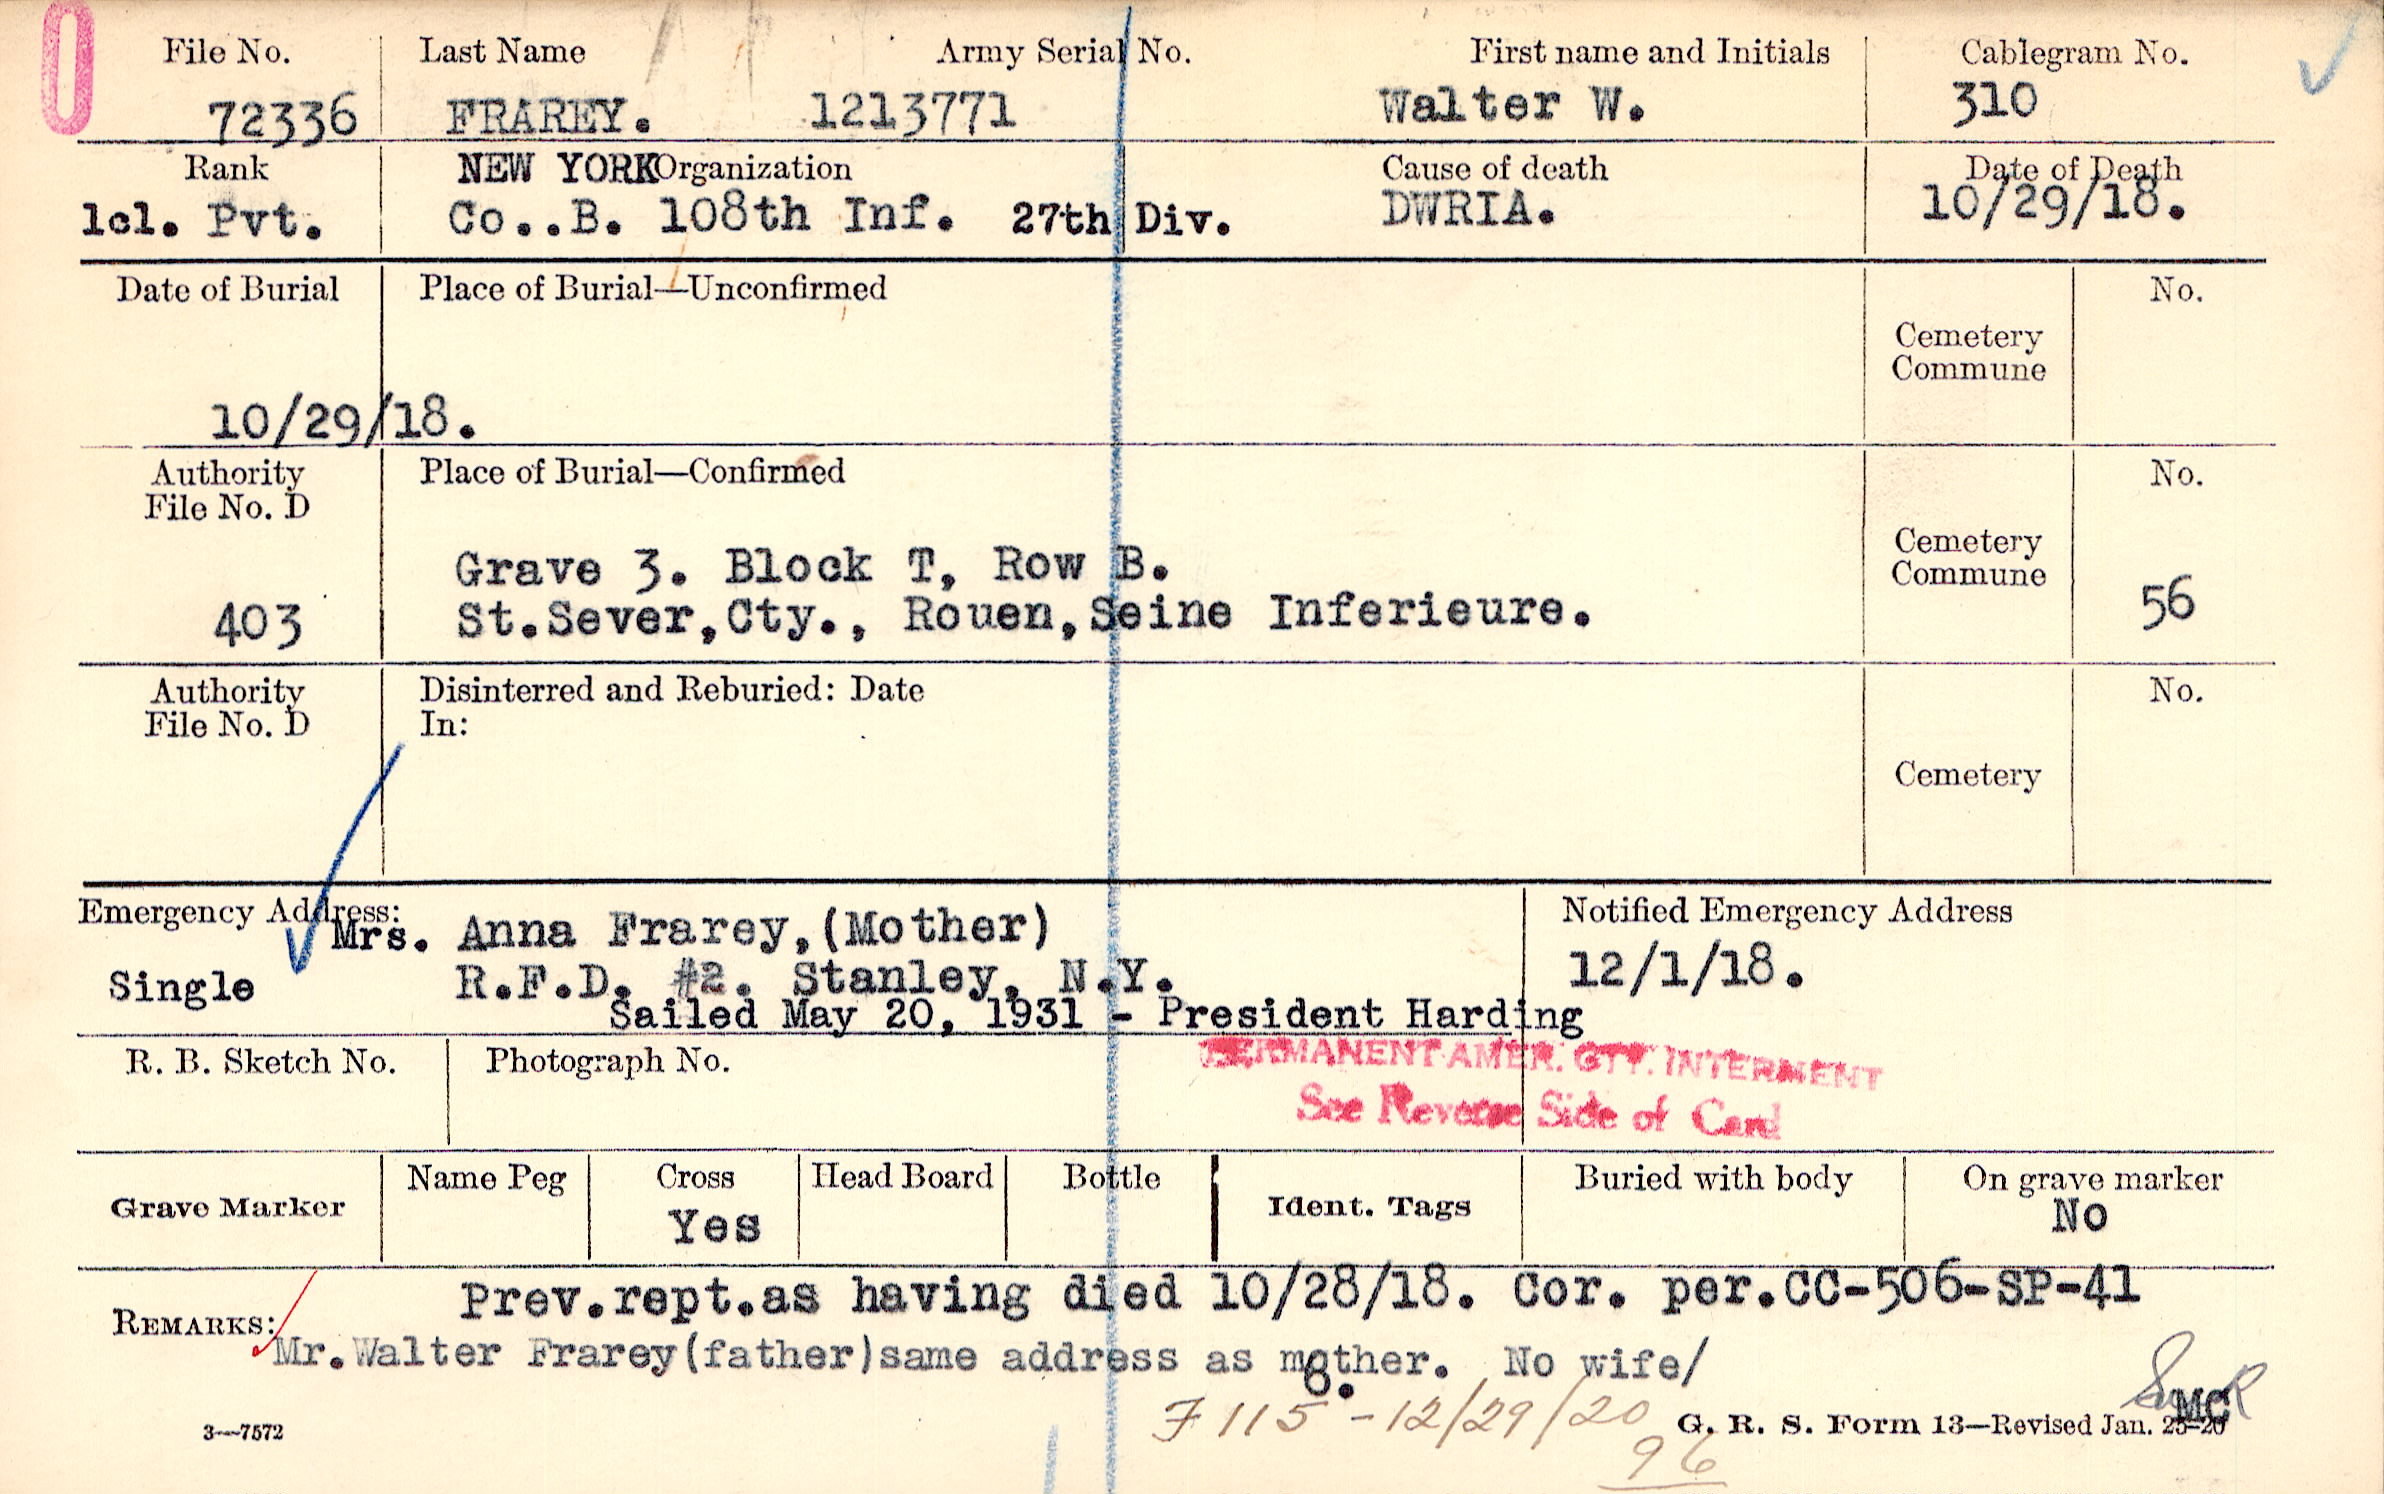 File No. Last Name Army Serial No. First name and Initials Cablegram No.
72336 FRAREY. 1213771 Walter W. 310
Rank NEW YORK Organization Cause of death Date of Death
1cl. Pvt. Co..B. 108th Inf. 27th Div. DWRIA. 10/29/18.
Date of Burial Place of Burial—Unconfirmed No.
Cemetery
Commune
10/29/18.
Authority Place of Burial—Confirmed No.
File No. D
Cemetery
Grave 3. Block T, Row B. Commune
403 St.Sever,Cty., Rouen,Seine Inferieure. 56
Authority Disinterred and Reburied: Date No.
File No. D In:
Cemetery
Emergency Address: Notified Emergency Address
Mrs. Anna Frarey,(Mother)
Single R.F.D. #2. Stanley, N.Y. 12/1/18.
Sailed May 20, 1931 - President Harding
R. B. Sketch No. Photograph No. PERMANENT AMER. CTY. INTERMENT
See Reverse Side of Card
Grave Marker Name Peg Cross Head Board Bottle Ident. Tags Buried with body On grave marker
Yes No
Prev.rept.as having died 10/28/18. Cor. per.CC-506-SP-41
REMARKS:
Mr.Walter Frarey(father)same address as mother. No wife/
8.
F 115 - 12/29/20
MC
3—7572 G. R. S. Form 13—Revised Jan. 25-20
96